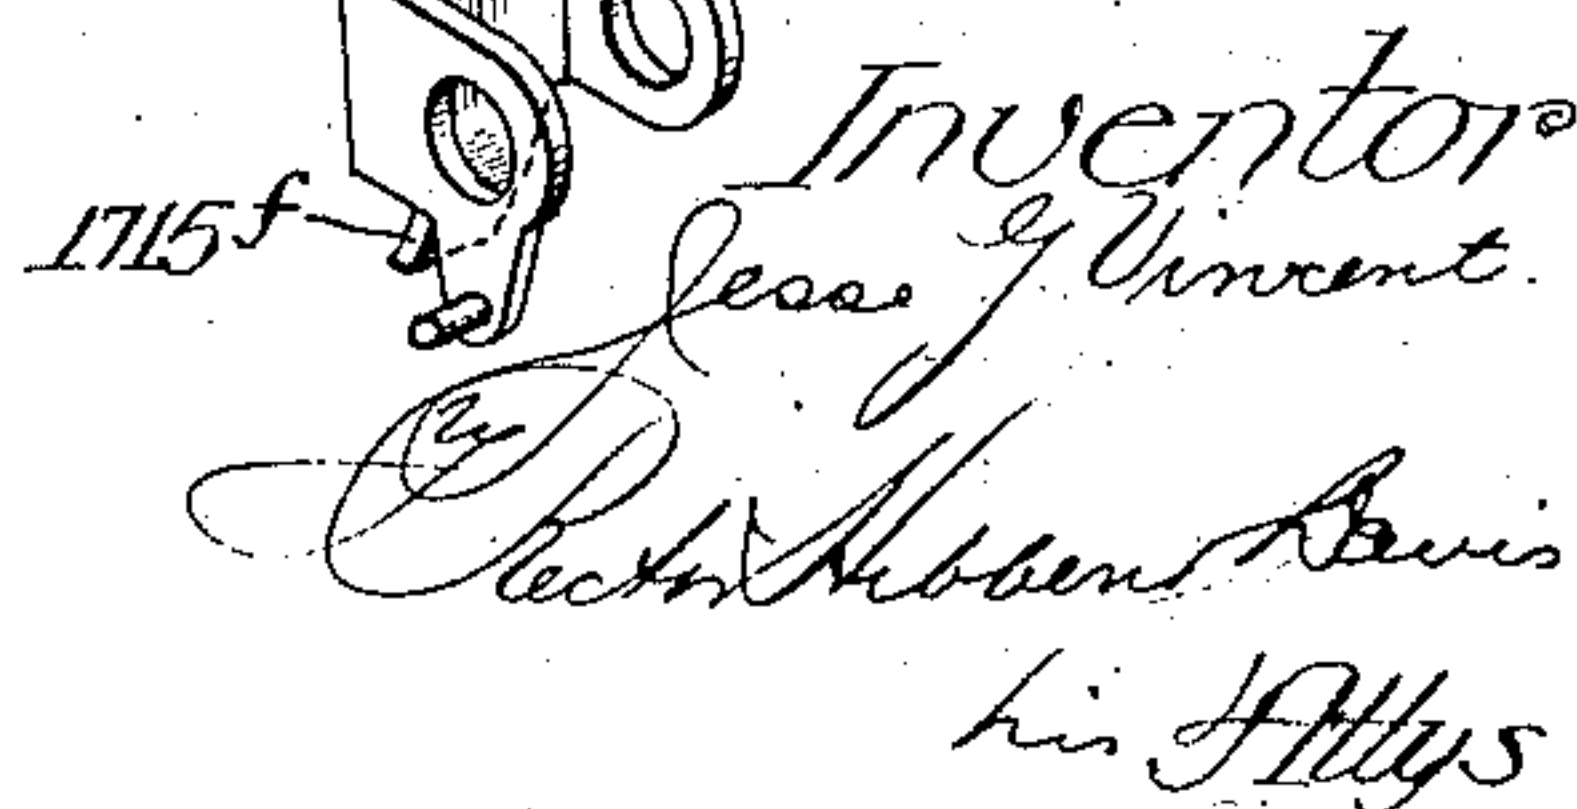 Inventor
1715f
Jesse G Vincent.
By
Rector Hibben Davis
his Attys